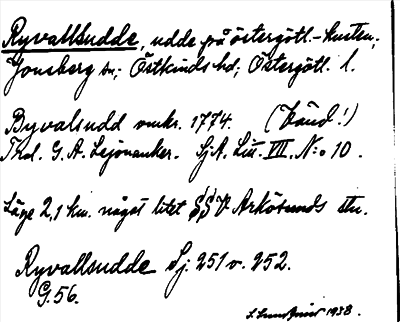 Ryvallsudde, udde på östergötl.-kusten;
Jonsberg sn; Östkinds hd; Östergötl. l.
Byvalsudd omkr. 1774. (Vänd!)
Thol. G. A. Lejonanker. SjA. Litt. VIII. N:o 10.
Läge 2,1 km. något litet S§V Arkösunds stn.
Ryvallsudde Sj. 251 v. 252.
G. 56.
1938.